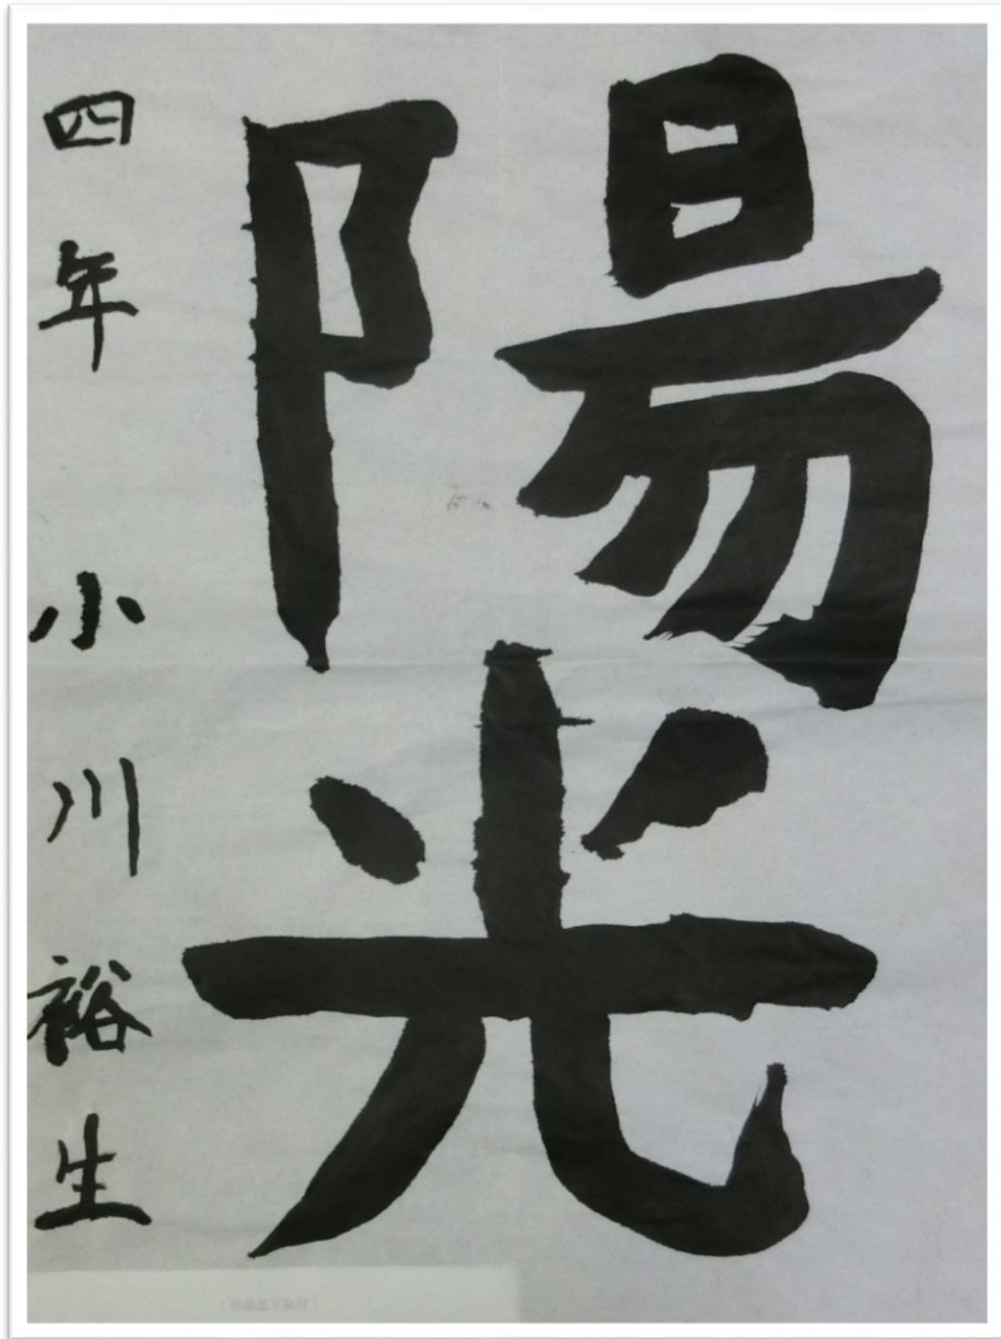 陽光
四年 小川裕生